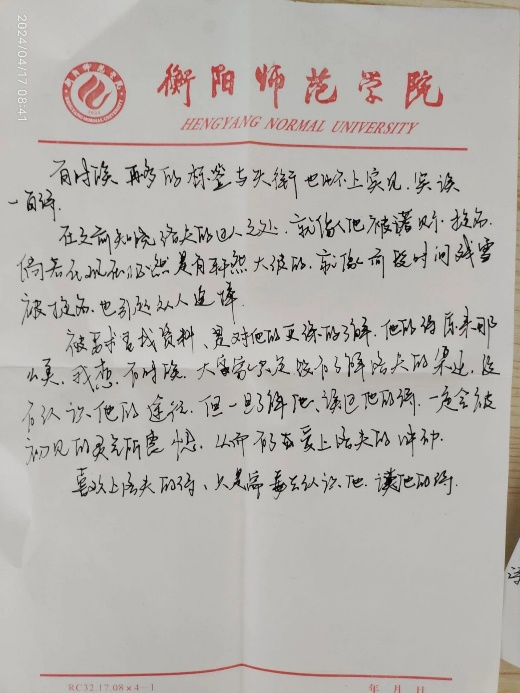 2024/04/17 08:41
衡阳师范学院
HENGYANG NORMAL UNIVERSITY
有时候 再多的标签与头衔也比不上实见、实读
一首诗.
在之前知晓洛夫的过人之处, 就像他被诺贝尔提名,
倘若在现在必然是有轩然大波的, 就像前段时间残雪
被提名, 也引起众人追捧
被要求查找资料、是对他的更深的了解, 他的诗原来那
么美, 我想, 有时候, 大家只是没有了解洛夫的渠道, 没
有认识他的途径, 但一旦了解他、读过他的诗, 一定会被
初见的灵光所震撼, 从而有爱上洛夫的冲动.
喜欢上洛夫的诗、只是需要去认识他、读他的诗.
RC32.17.08×4-1
年 月 日